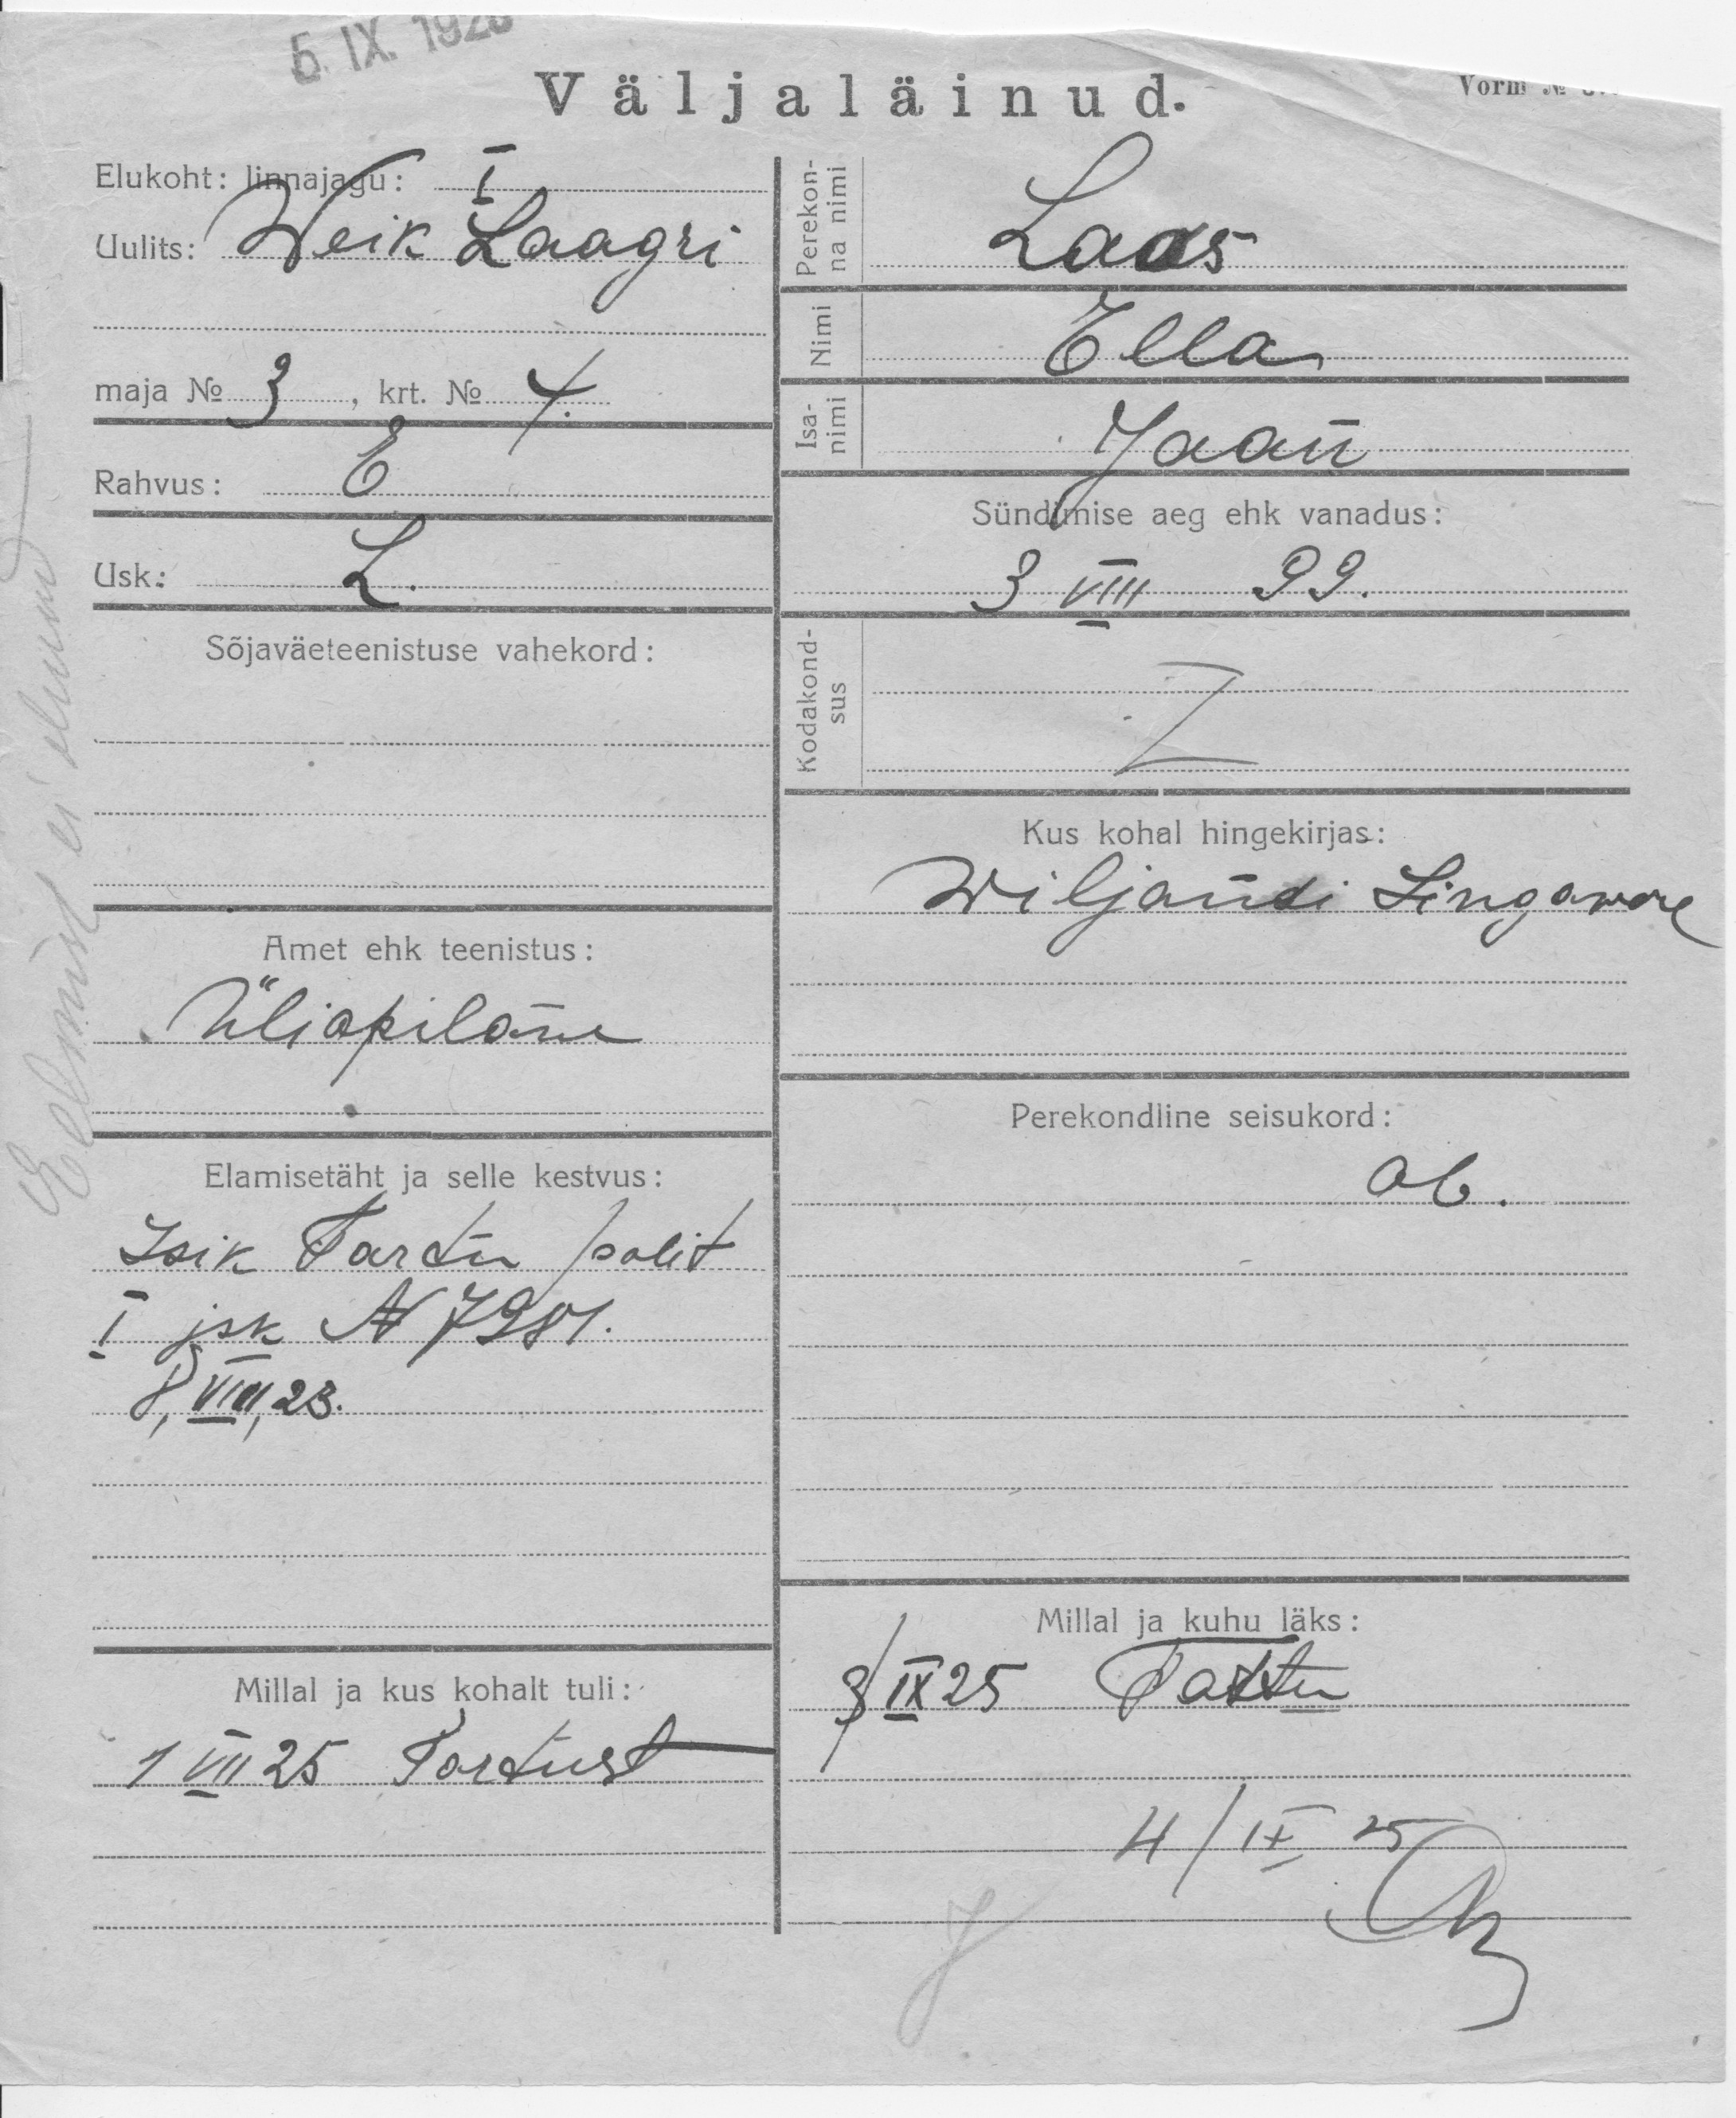 5. IX. 192
Väljaläinud.
Vorm №
Elukoht: linnajagu: I
Uulits: Weik Laagri
maja № 3, krt. № 4.
Rahvus: E
Usk: L.
Sõjaväeteenistuse vahekord:
Amet ehk teenistus:
Üliõpilane
Elamisetäht ja selle kestvus:
Isik Tartu polit
I jsk N 7981.
8, VIII, 23.
Millal ja kus kohalt tuli:
1 VII 25 Tartust
Perekonna nimi
Laas
Nimi
Ella
Isanimi
Jaan
Sündimise aeg ehk vanadus:
3 VIII 99.
Kodakondsus
Kus kohal hingekirjas:
Wiljandi
Perekondline seisukord:
Millal ja kuhu läks:
3/IX 25 Tartu
4/IX 25
Eelmist ei elunud